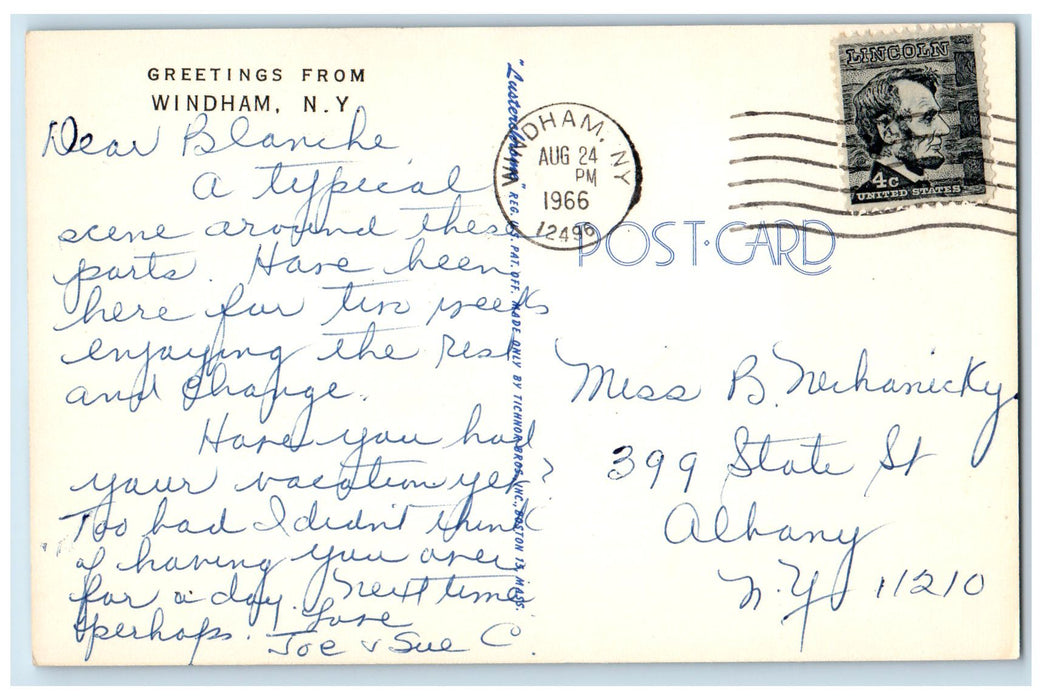 GREETINGS FROM
WINDHAM, N.Y
Dear Blanche,
A typical
scene around these
parts. Have been
here for two weeks
enjoying the rest
and change.
Have you had
your vacation yet?
Too bad I didn't think
of having you over
for a day. Next time
perhaps. Love
Joe & Sue C.
"Lusterchrome" REG. U.S. PAT. OFF. MADE ONLY BY TICHNOR BROS., INC., BOSTON 15, MASS.
WINDHAM, NY
AUG 24
PM
1966
12496
LINCOLN
4c
UNITED STATES
POST·CARD
Miss B. Nechanicky
399 State St
Albany
N.Y 11210